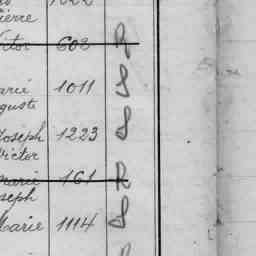 ierre
ictor 603
arie 1011
guste
Joseph 1223
Victor
marie 161
oseph
Marie 1114